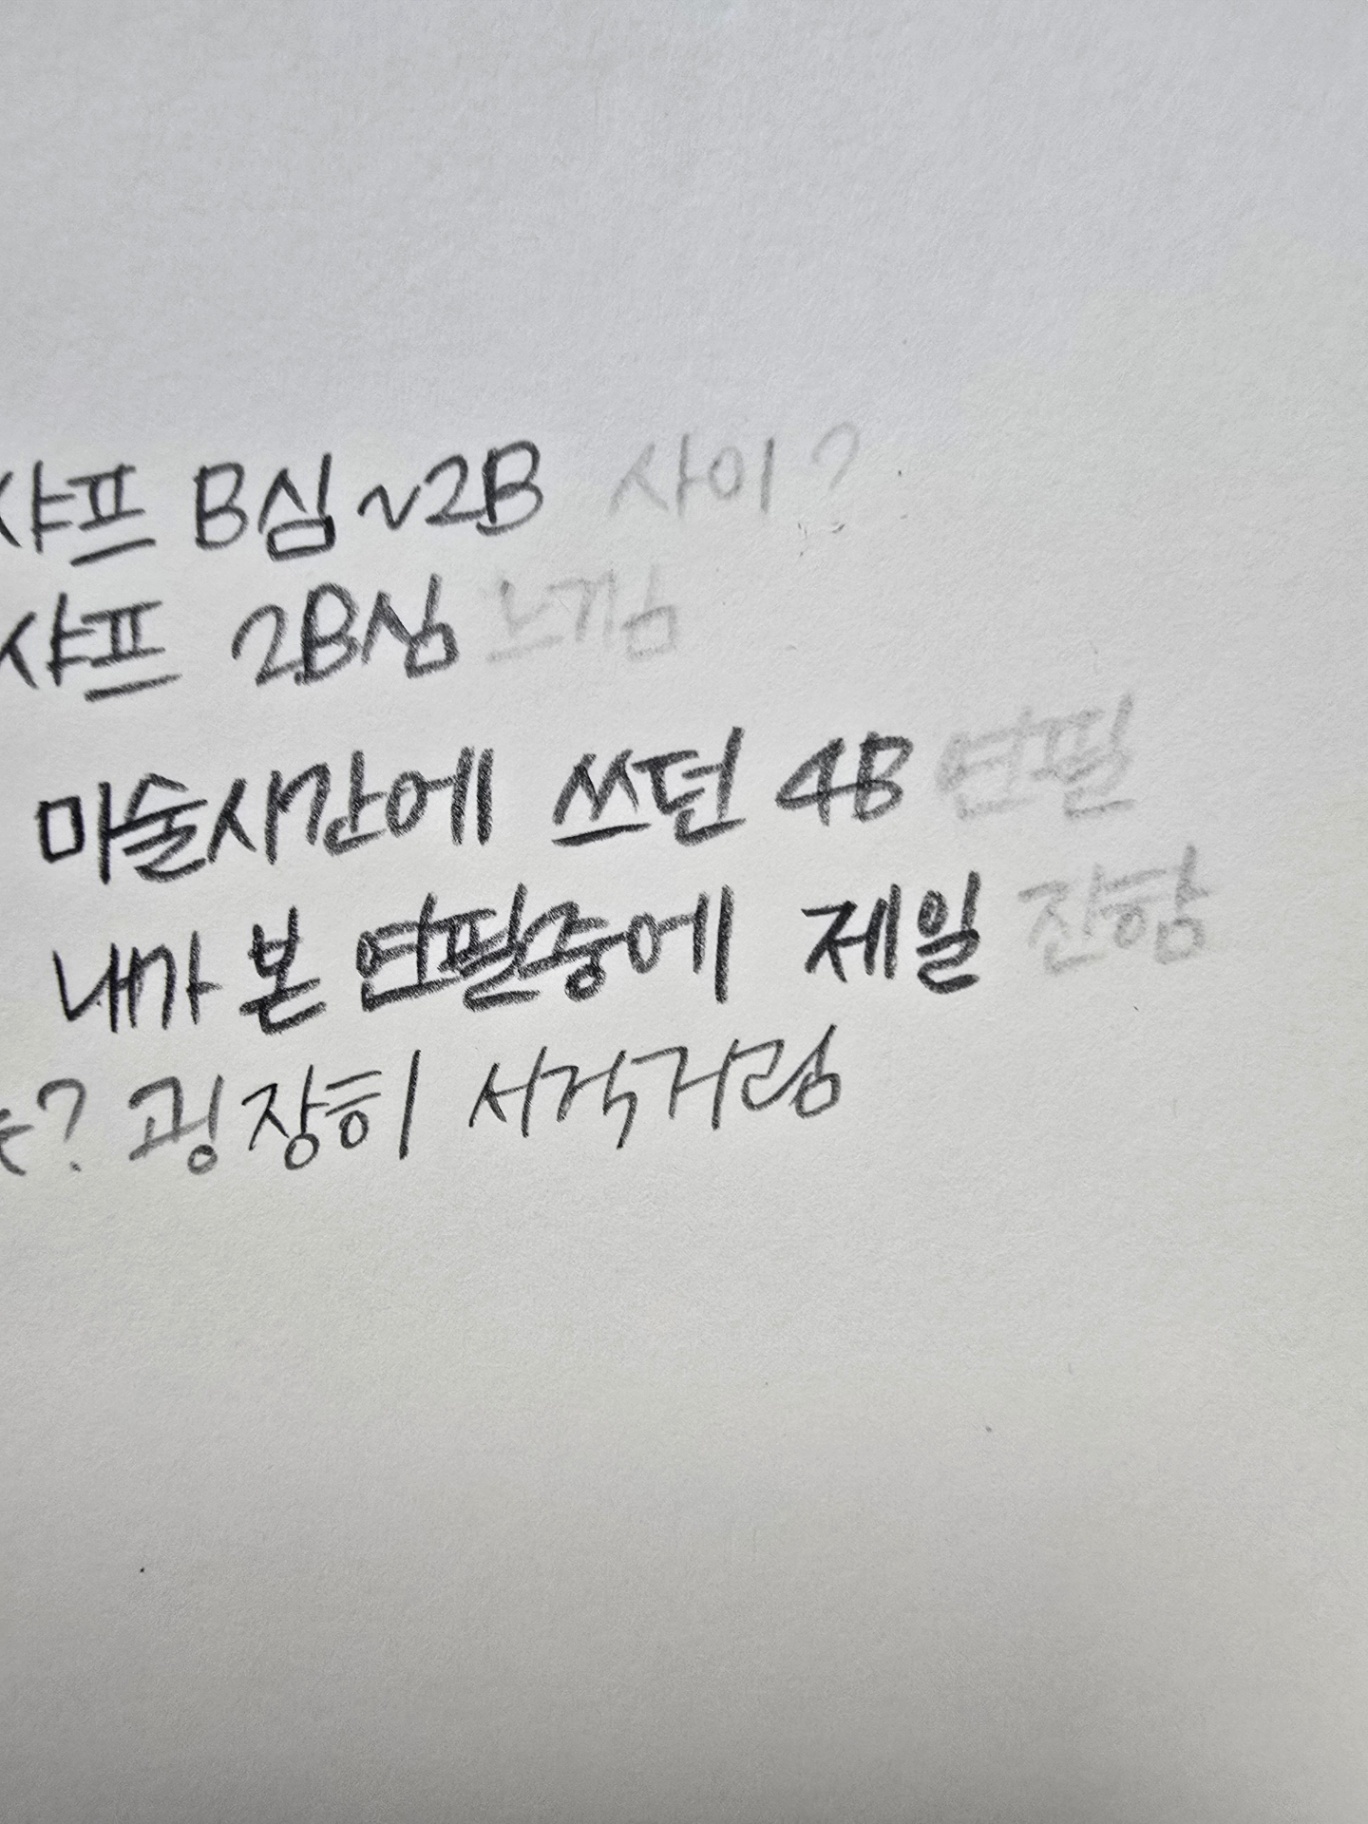 샤프 B심~2B 사이?
샤프 2B심 느낌
미술시간에 쓰던 4B 연필
내가 본 연필중에 제일 진함
? 굉장히 서걱거림